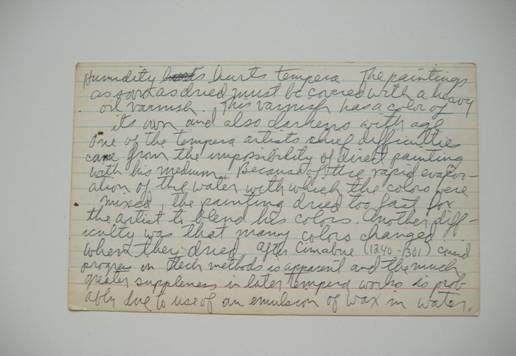 Humidity hurts tempera. The paintings
as soon as dried must be covered with a heavy
oil varnish. This varnish has a color of
its own and also darkens with age
One of the tempera artists chief difficulties
came from the impossibility of direct painting
with his medium. Because of the rapid evapor-
ation of the water with which the colors were
mixed, the painting dried too fast for
the artist to blend his colors. Another diff-
iculty was that many colors changed
when they dried. After Cimabue (1240-1301)
progress in methods is apparent and the much
greater suppleness in later tempera works is prob-
ably due to use of an emulsion of wax in water.